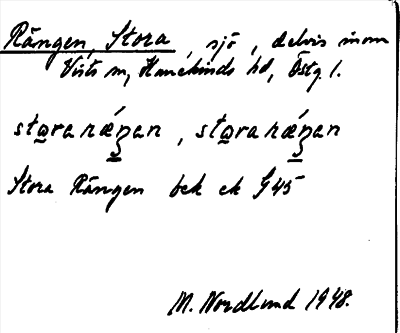 Rängen, Stora, sjö, delvis inom
Vists sn, Hanekinds hd, Östg. l.
stɑrarǽŋan, stɑrarǽŋan
Stora Rängen bek ek G45
M. Nordlund 1948.